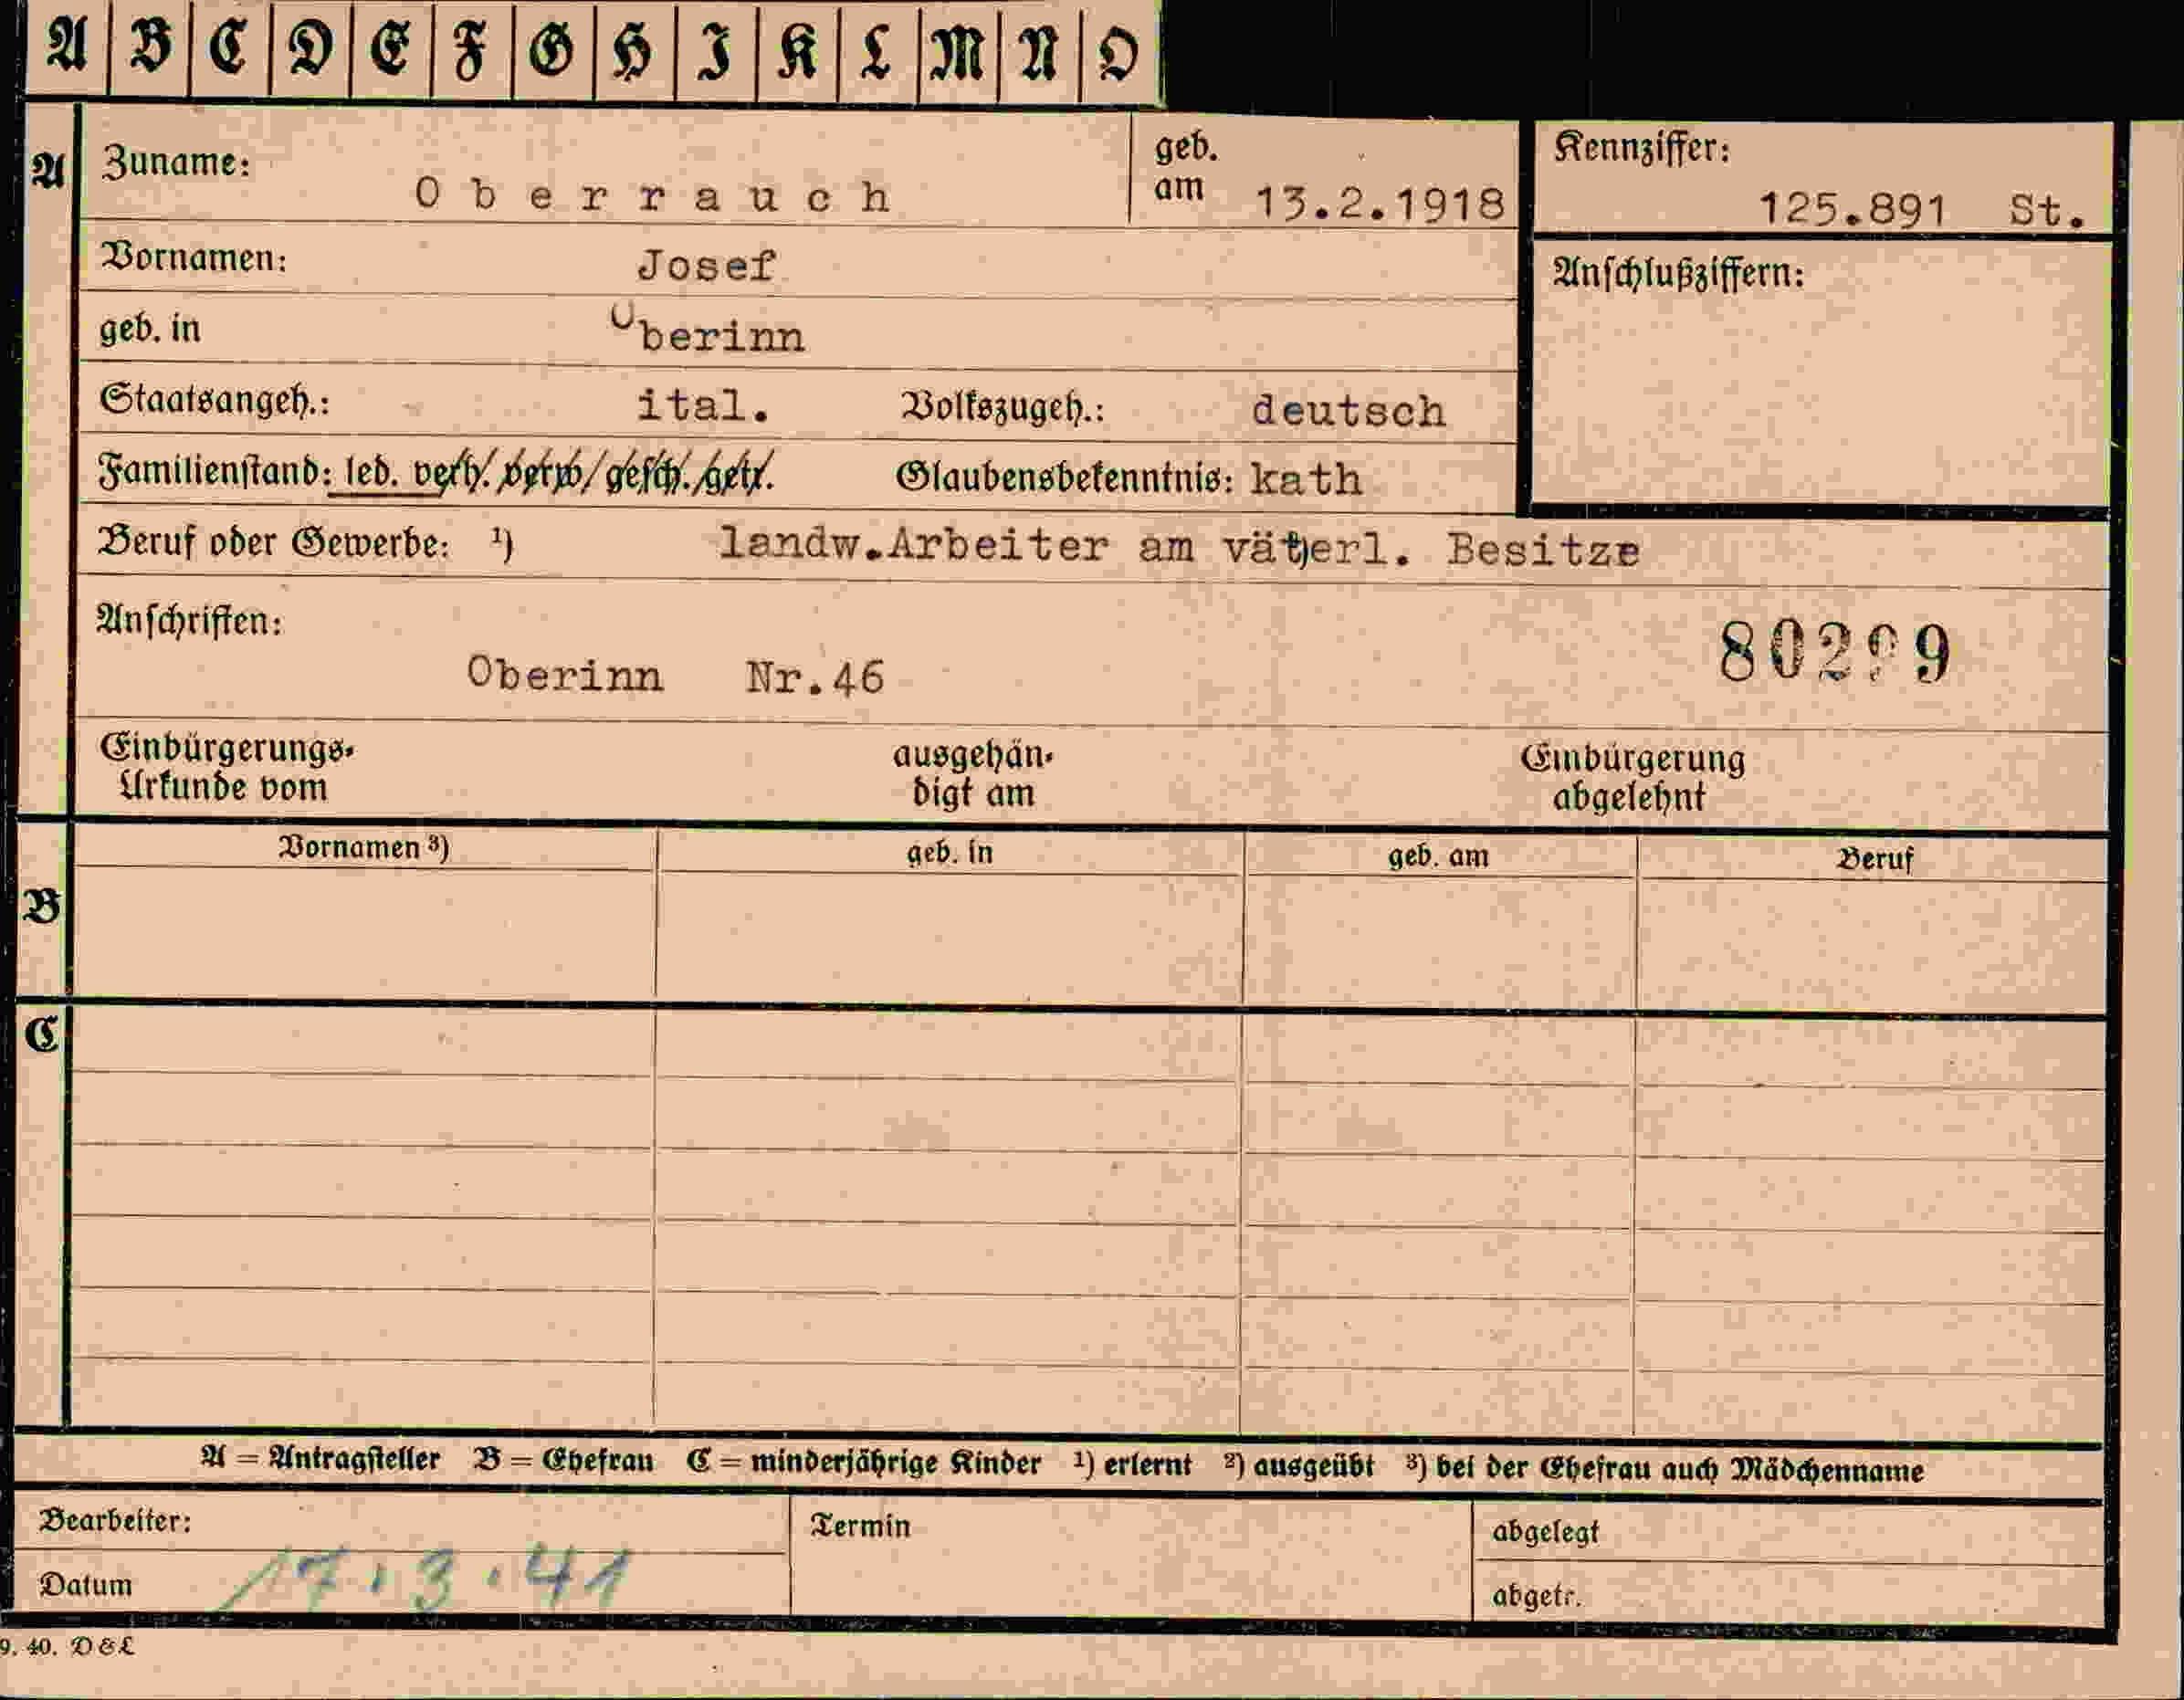 A B C D E F G H I K L M N O
A Zuname: Oberrauch geb. am 13.2.1918 Kennziffer: 125.891 St.
Vornamen: Josef Anschlußziffern:
geb. in Oberinn
Staatsangeh.: ital. Volkszugeh.: deutsch
Familienstand: led. verh. verw. gesch. getr. Glaubensbekenntnis: kath
Beruf oder Gewerbe: ¹) landw.Arbeiter am väterl. Besitze
Anschriften:
Oberinn Nr.46
Einbürgerungs-Urkunde vom ausgehändigt am Einbürgerung abgelehnt
B Vornamen ³) geb. in geb. am Beruf
C
A = Antragsteller B = Ehefrau C = minderjährige Kinder ¹) erlernt ²) ausgeübt ³) bei der Ehefrau auch Mädchenname
Bearbeiter: Termin abgelegt
Datum 17.3.41 abgetr.
9. 40. D & L